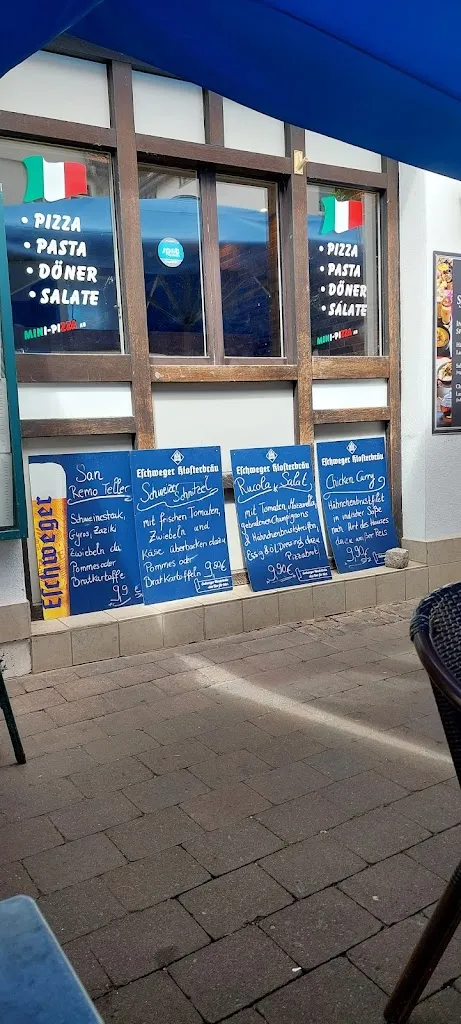 • PIZZA
• PASTA
• DÖNER
• SALATE
MINI-PIZZA
• PIZZA
• PASTA
• DÖNER
• SALATE
MINI-PIZZA
Eschweger
San
Remo Teller
Schweinesteak,
Gyros, Zaziki
Zwiebeln da
Pommes oder
Bratkartoffe
9,9
Eschweger Klosterbräu
Schweizer
Schnitzel
mit frischen Tomaten,
Zwiebeln und
Käse überbacken dazu
Pommes oder
Bratkartoffeln
9,50€
Eschweger Klosterbräu
Rucola Salat
mit Tomaten, Mozzarella,
gebratenen Champignons
& Hähnchenbruststreifen,
Essig & Öl Dressing, dazu
Pizzabrot
9,90€
Eschweger Klosterbräu
Chicken Curry
Hähnchenbrustfilet
in indischer Soße
nach Art des Hauses
dazu weißer Reis
9,90€